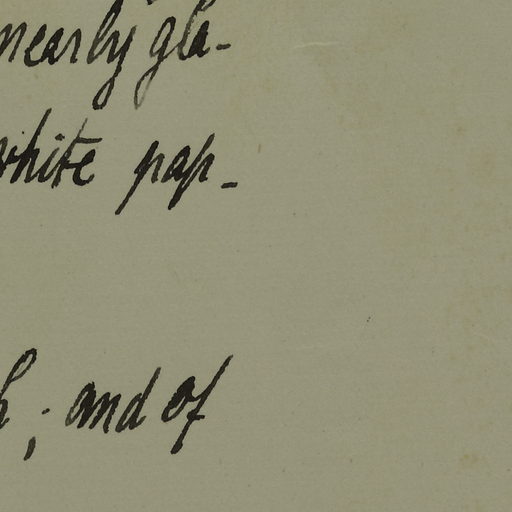 nearly gla-
white pap-
; and of